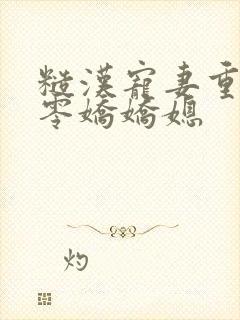 糙漢寵妻重
零嬌嬌媳
灼